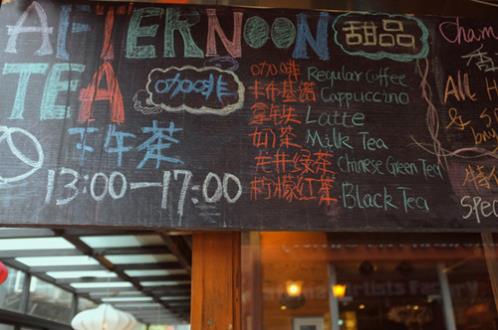 AFTERNOON
TEA
咖啡
下午茶
13:00—17:00
甜品
咖啡 Regular Coffee
卡布基诺 Cappuccino
拿铁 Latte
奶茶 Milk Tea
龙井绿茶 Chinese Green Tea
柠檬红茶 Black Tea
Cham
香
All H
& S
Spec
Artists Factory